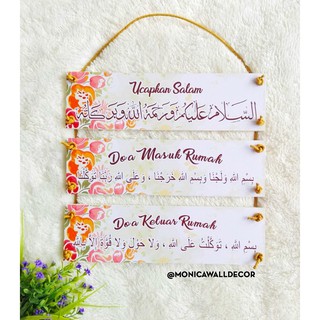 Ucapkan Salam
السَّلَامُ عَلَيْكُمْ وَرَحْمَةُ اللهِ وَبَرَكَاتُهُ
Doa Masuk Rumah
بِسْمِ اللهِ وَلَجْنَا وَبِسْمِ اللهِ خَرَجْنَا ، وَعَلَى اللهِ رَبِّنَا تَوَكَّلْنَا
Doa Keluar Rumah
بِسْمِ اللهِ ، تَوَكَّلْتُ عَلَى اللهِ ، وَلَا حَوْلَ وَلَا قُوَّةَ إِلَّا بِاللهِ
@MONICAWALLDECOR